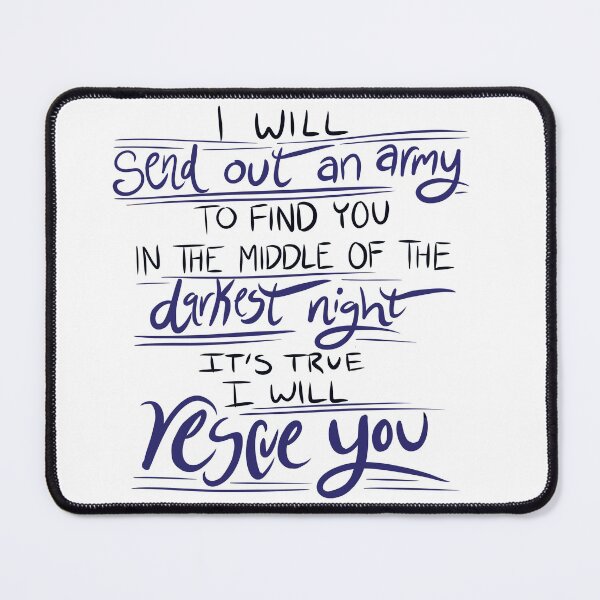 I WILL
send out an army
TO FIND YOU
IN THE MIDDLE OF THE
darkest night
IT'S TRUE
I WILL
rescue you